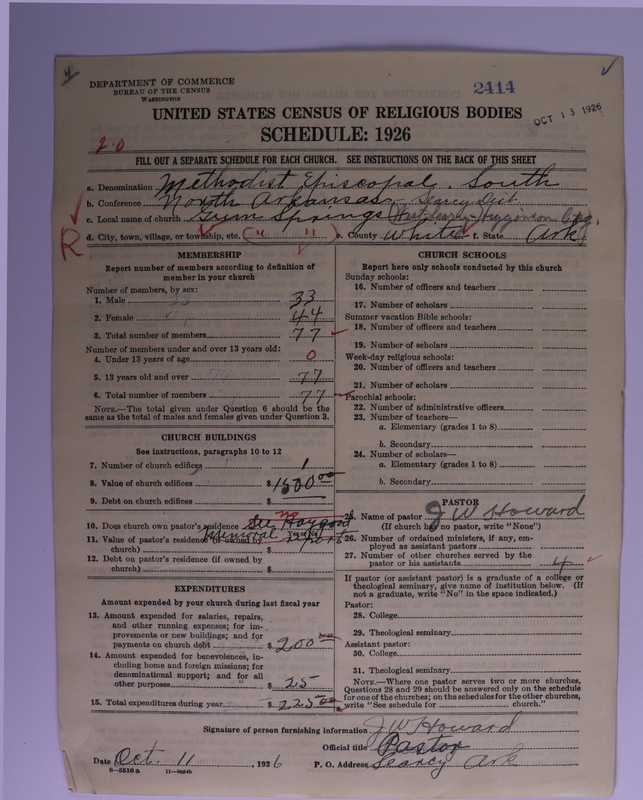 4
DEPARTMENT OF COMMERCE
BUREAU OF THE CENSUS
WASHINGTON
2414
OCT 13 1926
UNITED STATES CENSUS OF RELIGIOUS BODIES
SCHEDULE: 1926
20
FILL OUT A SEPARATE SCHEDULE FOR EACH CHURCH. SEE INSTRUCTIONS ON THE BACK OF THIS SHEET
a. Denomination Methodist Episcopal, South
b. Conference North Arkansas, Searcy Dist.
c. Local name of church Gum Springs (West Searcy-Higginson
R
d. City, town, village, or township, etc. (" ") e. County White f. State Ark
MEMBERSHIP
Report number of members according to definition of
member in your church
Number of members, by sex:
1. Male 33
2. Female 44
3. Total number of members 77
Number of members under and over 13 years old:
4. Under 13 years of age 0
5. 13 years old and over 77
6. Total number of members 77
NOTE.—The total given under Question 6 should be
the same as the total of males and females given under Question 3.
CHURCH BUILDINGS
See instructions, paragraphs 10 to 12
7. Number of church edifices 1
8. Value of church edifices $ 1500 00
9. Debt on church edifices $
10. Does church own pastor's residence See Haygood
no
11. Value of pastor's residence (if owned by
church) $
Memorial report
12. Debt on pastor's residence (if owned by
church) $
EXPENDITURES
Amount expended by your church during last fiscal year
13. Amount expended for salaries, repairs,
and other running expenses; for im-
provements or new buildings; and for
payments on church debt $ 200
14. Amount expended for benevolences, in-
cluding home and foreign missions; for
denominational support; and for all
other purposes $ 25
15. Total expenditures during year $ 225 00
CHURCH SCHOOLS
Report here only schools conducted by this church
Sunday schools:
16. Number of officers and teachers
17. Number of scholars
Summer vacation Bible schools:
18. Number of officers and teachers
19. Number of scholars
Week-day religious schools:
20. Number of officers and teachers
21. Number of scholars
Parochial schools:
22. Number of administrative officers
23. Number of teachers—
a. Elementary (grades 1 to 8)
b. Secondary
24. Number of scholars—
a. Elementary (grades 1 to 8)
b. Secondary
PASTOR
25. Name of pastor J W Howard
(If church has no pastor, write "None")
26. Number of ordained ministers, if any, em-
ployed as assistant pastors
27. Number of other churches served by the
pastor or his assistants 4
If pastor (or assistant pastor) is a graduate of a college or
theological seminary, give name of institution below. (If
not a graduate, write "No" in the space indicated.)
Pastor:
28. College
29. Theological seminary
Assistant pastor:
30. College
31. Theological seminary
NOTE.—Where one pastor serves two or more churches,
Questions 28 and 29 should be answered only on the schedule
for one of the churches; on the schedules for the other churches,
write "See schedule for church."
Signature of person furnishing information J W Howard
Official title Pastor
Date Oct. 11, 1926 P. O. Address Searcy Ark
8—5518a 11—9034b